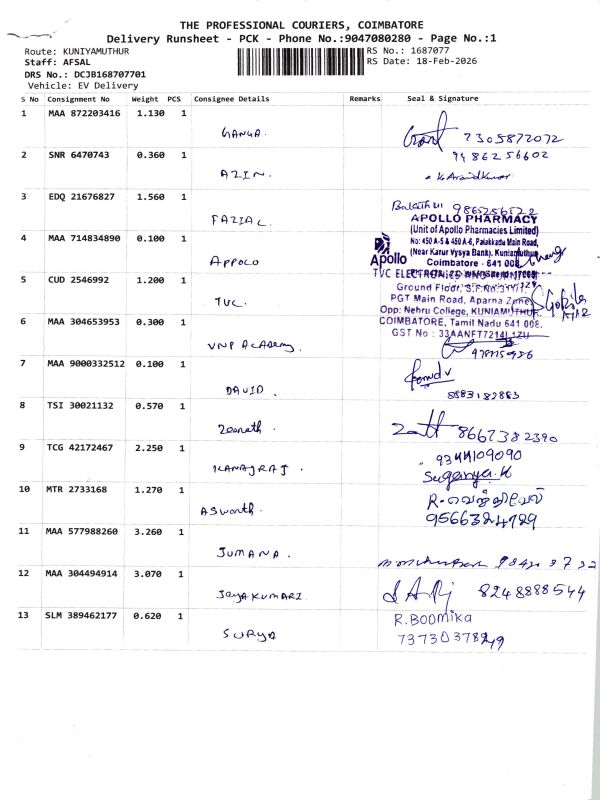 THE PROFESSIONAL COURIERS, COIMBATORE
Delivery Runsheet - PCK - Phone No.:9047080280 - Page No.:1
Route: KUNIYAMUTHUR
RS No.: 1687077
Staff: AFSAL
RS Date: 18-Feb-2026
DRS No.: DCJB168707701
Vehicle: EV Delivery
S No Consignment No Weight PCS Consignee Details Remarks Seal & Signature
1 MAA 872203416 1.130 1
GANGA. 7305872072
2 SNR 6470743 0.360 1 9486256602
AZIN.
3 EDQ 21676827 1.560 1
FAZIAL.
APOLLO PHARMACY
(Unit of Apollo Pharmacies Limited)
4 MAA 714834890 0.100 1 No: 450 A-5 & 450 A-6, Palakkadu Main Road,
(Near Karur Vysya Bank), Kuniamuthur
APPOLO Apollo Coimbatore - 641 008
TVC ELECTRONICS
5 CUD 2546992 1.200 1
Ground Floor,
TVC. PGT Main Road, Aparna Zone
Opp: Nehru College, KUNIAMUTHUR
6 MAA 304653953 0.300 1 COIMBATORE, Tamil Nadu 641 008.
GST No : 33AANFT7214L1ZU
VNP ACADEMY.
7 MAA 9000332512 0.100 1
DAVID. 8883182883
8 TSI 30021132 0.570 1
Zeenath. 8667382390
9 TCG 42172467 2.250 1 9344109090
KANAJRAJ. Suganya.K
10 MTR 2733168 1.270 1 R-வெற்றிவேல்
Aswanth. 9566324729
11 MAA 577988260 3.260 1
JUMANA.
12 MAA 304494914 3.070 1 8248888544
JayaKUMARI.
13 SLM 389462177 0.620 1 R.BOOMIKA
SURYA